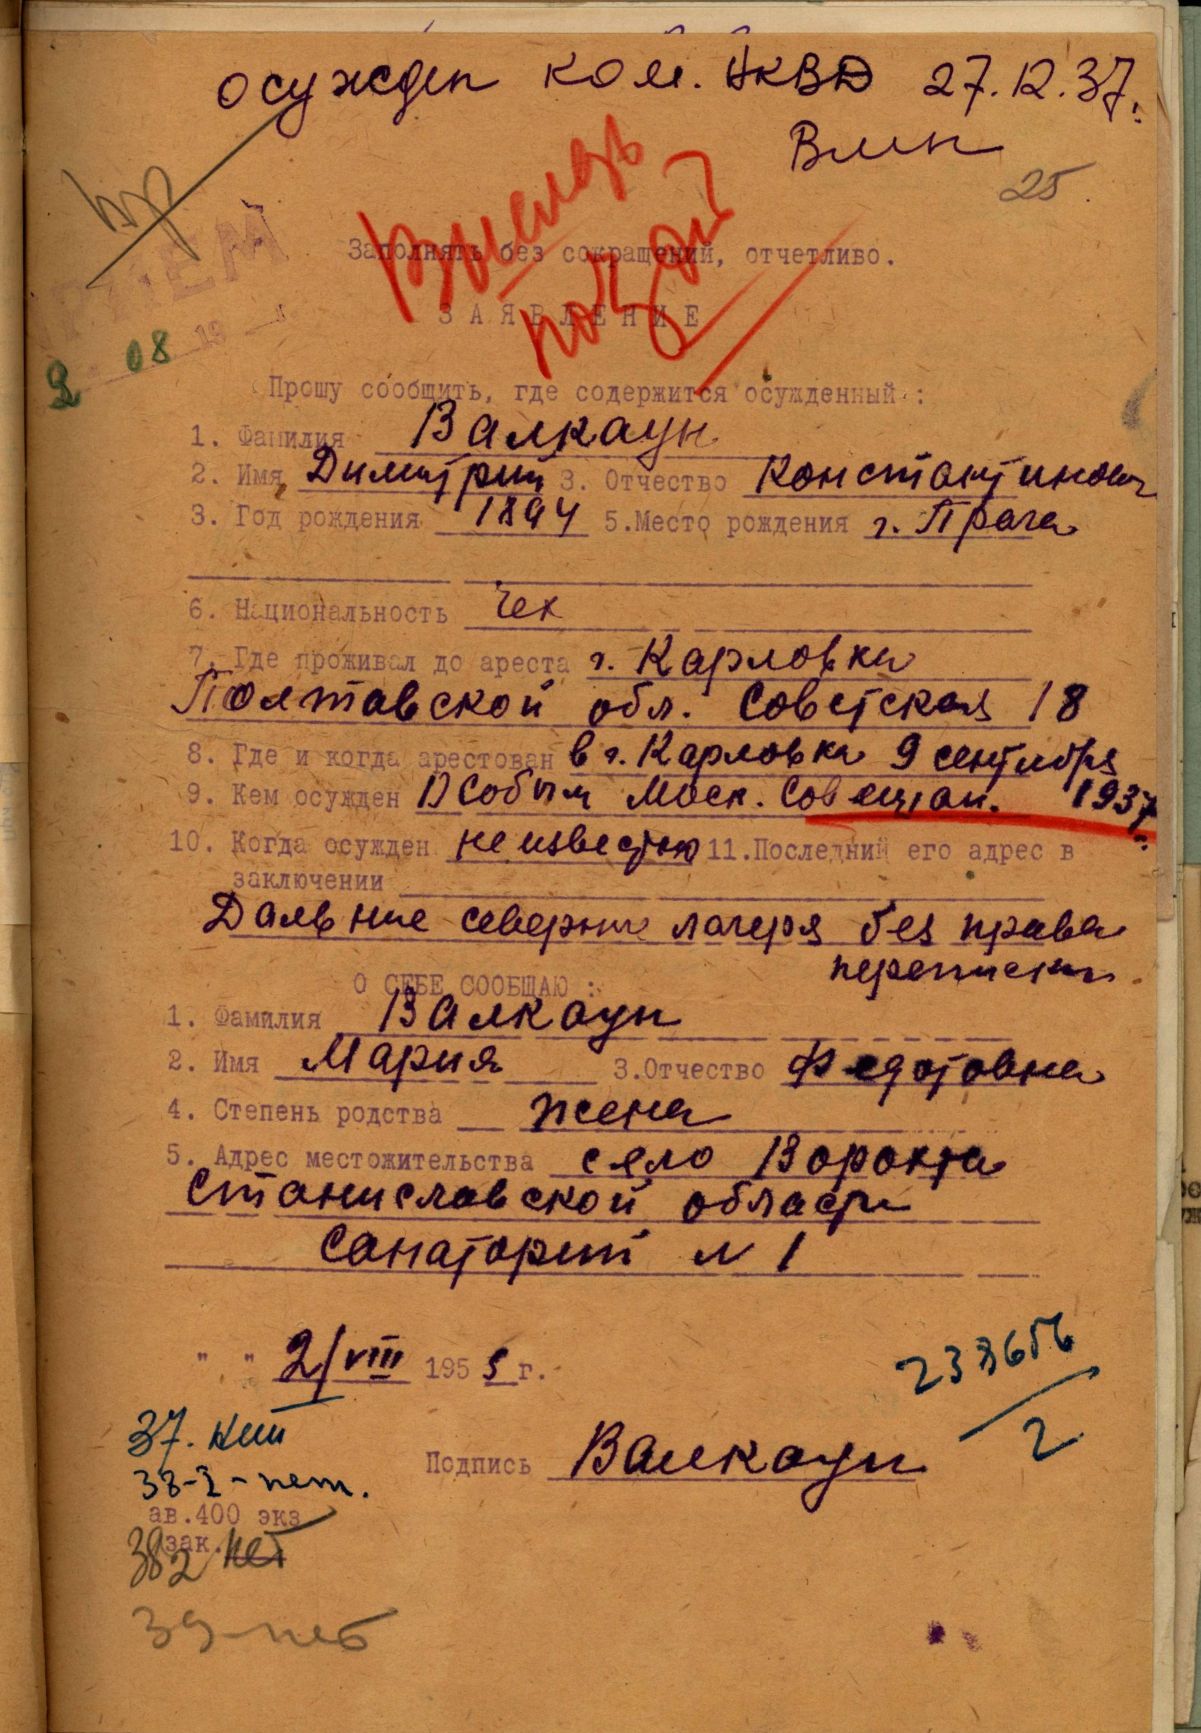 осужден ком. НКВД 27.12.37.
Вмн
25.
ПРИЕМ
08
Заполнять без сокращений, отчетливо.
ЗАЯВЛЕНИЕ
Прошу сообщить, где содержится осужденный :
1. Фамилия Валкаун
2. Имя Димитрий 3. Отчество Константинович
3. Год рождения 1894 5.Место рождения г. Прага
6. Национальность Чех
7. Где проживал до ареста г. Карловка
Полтавской обл. Советская 18
8. Где и когда арестован в г. Карловка 9 сентября
9. Кем осужден Особым Моск. Совещан. 1937 г.
10. Когда осужден неизвестно 11.Последний его адрес в
заключении
Дальние северные лагеря без права
переписки
О СЕБЕ СООБЩАЮ :
1. Фамилия Валкаун
2. Имя Мария 3.Отчество Федотовна
4. Степень родства жена
5. Адрес местожительства село Ворохта
Станиславской области
Санаторий N 1
" " 2/VIII 1955 г.
233656
2
37.
Подпись Валкаун
38-I-нет.
ав.400 экз
зак.
382 нет
39-нет